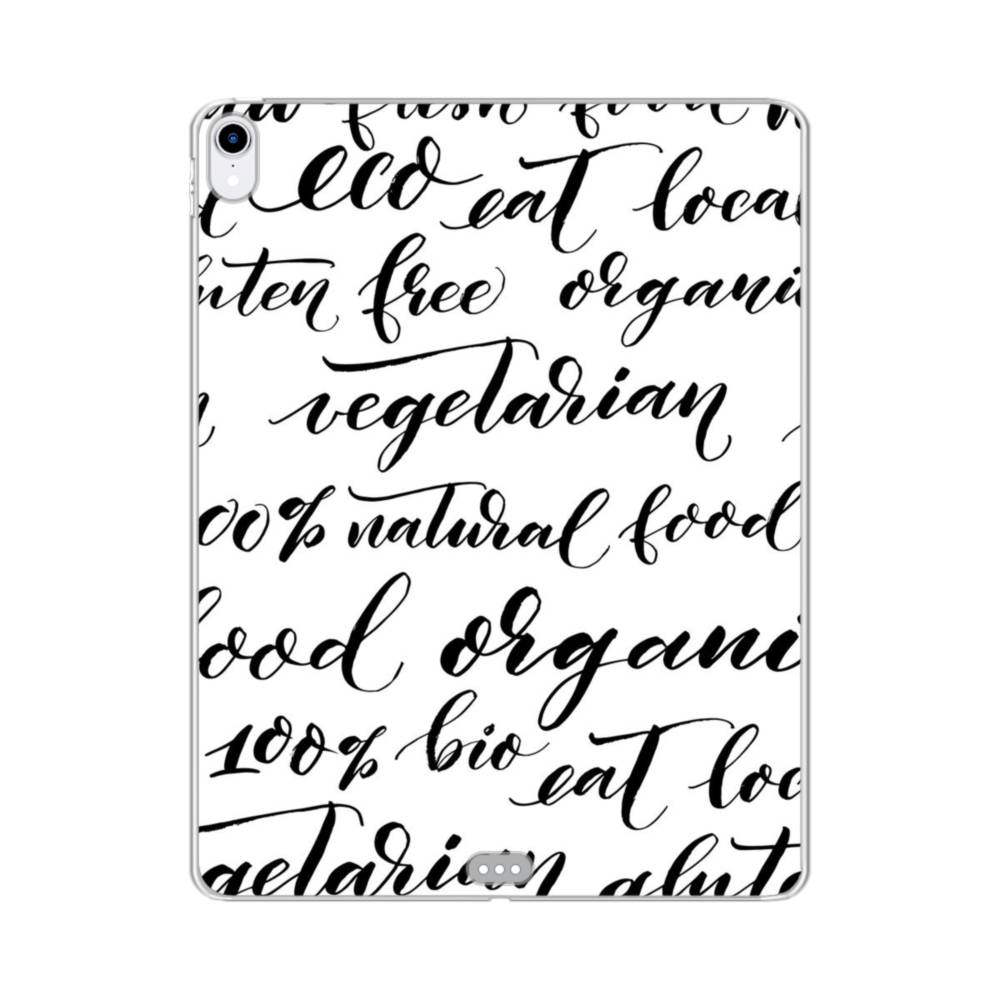 fresh food
eco eat loca
uten free organi
vegetarian
00% natural food
ood organi
100% bio eat loc
getarian glute